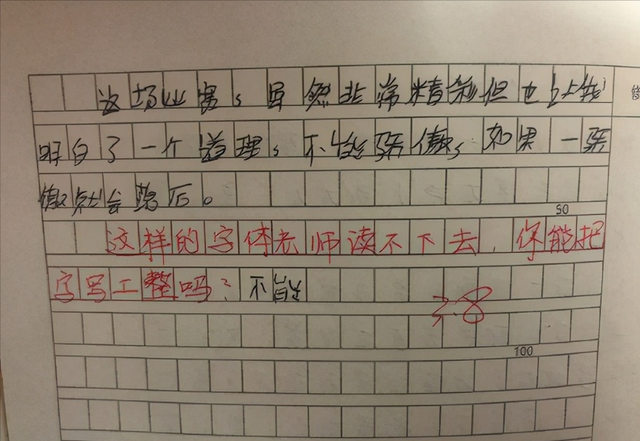 这场比赛，虽然非常精彩但也让我
明白了一个道理。不能骄傲，如果一骄
傲就会落后。
50
这样的字体老师读不下去，你能把
字写工整吗？不能
3.8
100